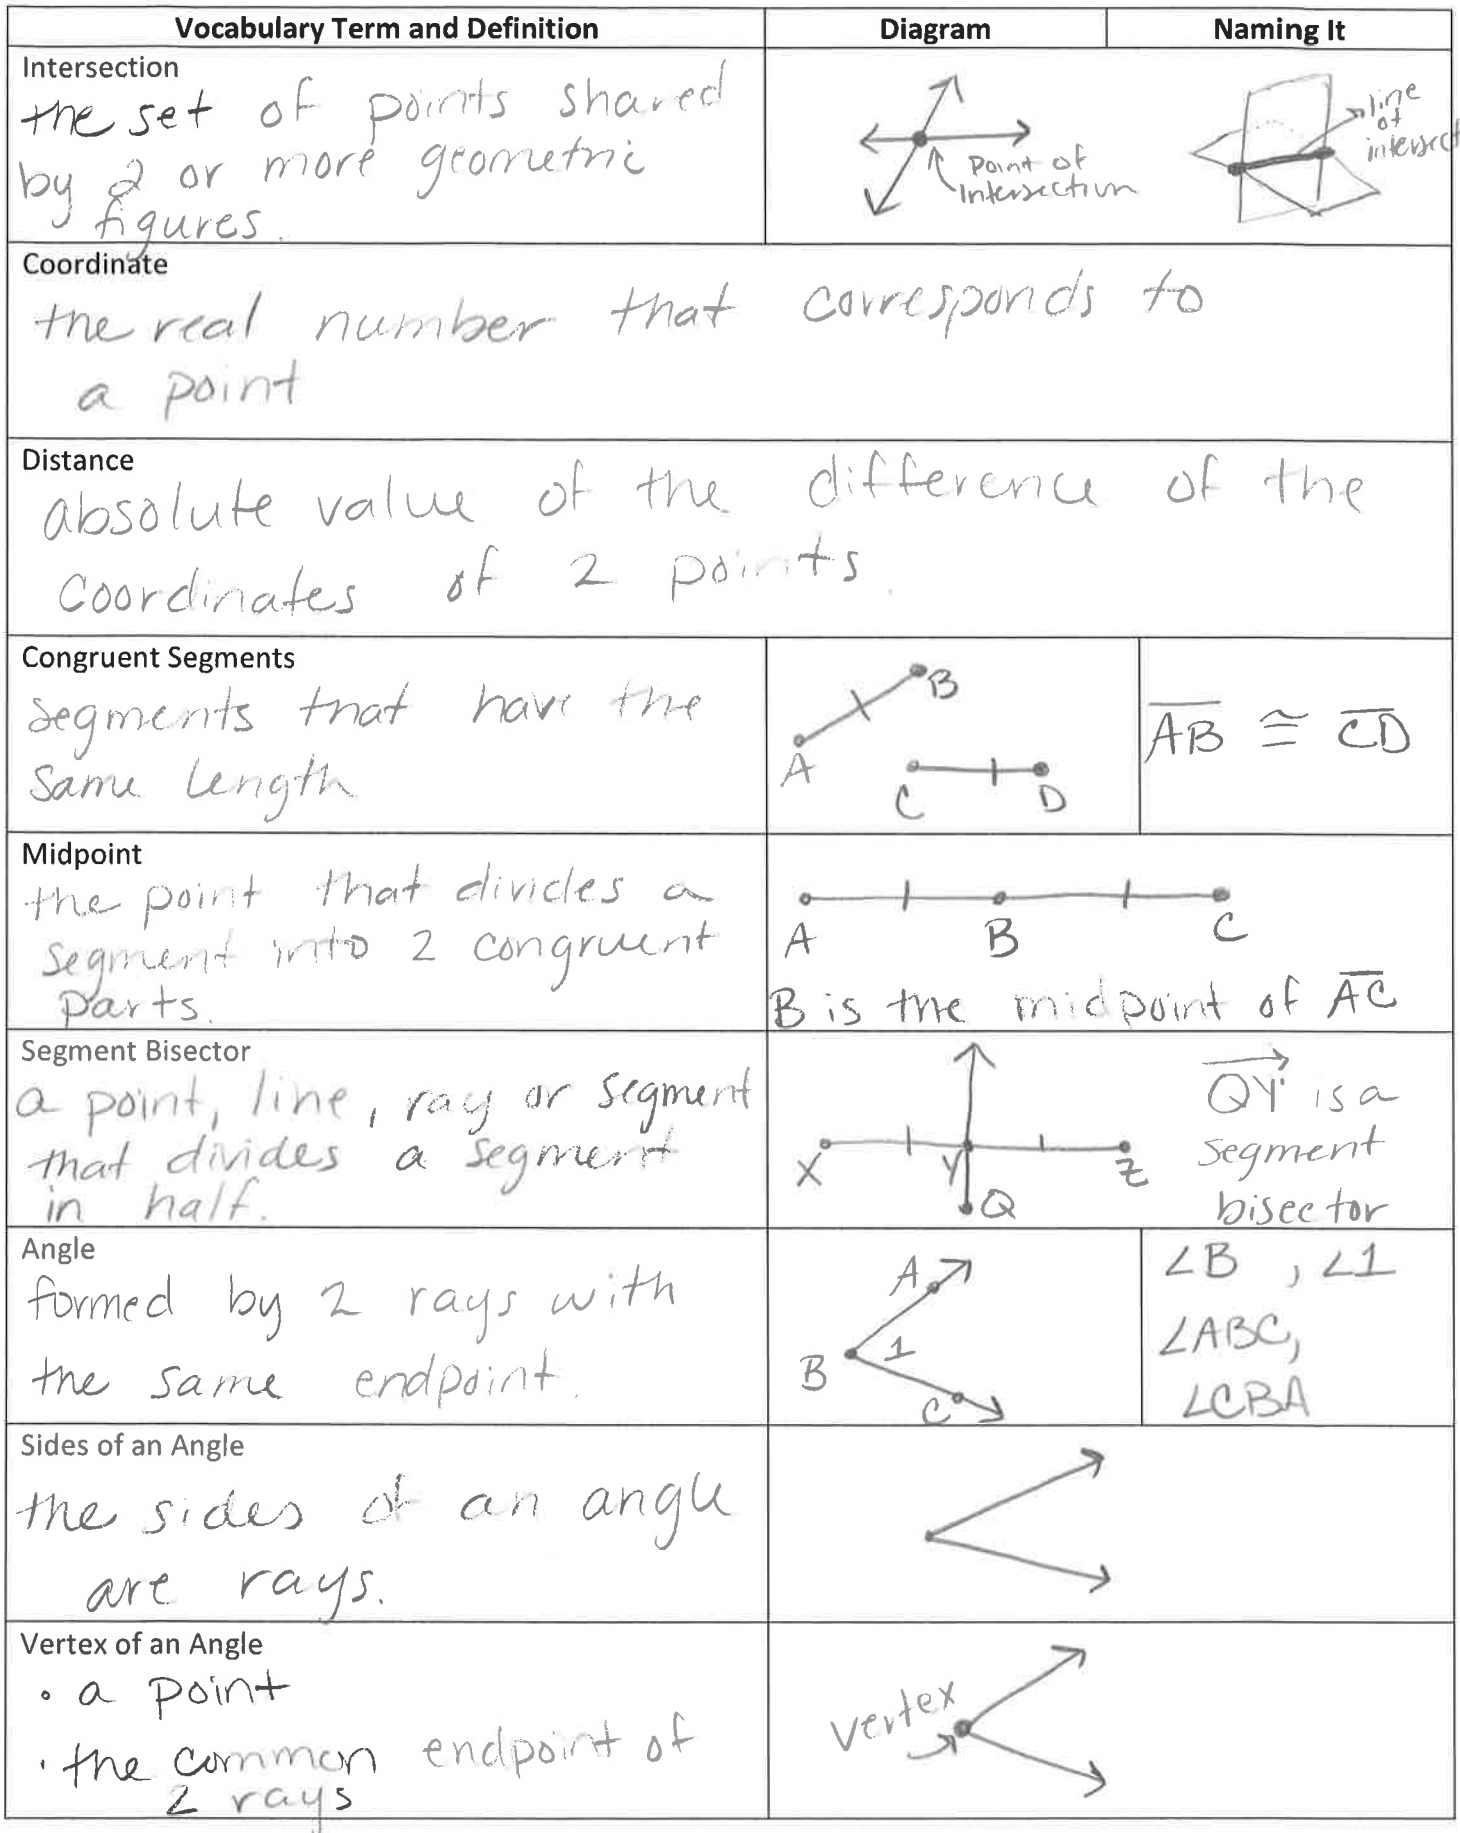 Vocabulary Term and Definition Diagram Naming It
Intersection
the set of points shared
by 2 or more geometric
figures.
Point of
Intersection
line
of
intersect
Coordinate
the real number that corresponds to
a point
Distance
absolute value of the difference of the
coordinates of 2 points.
Congruent Segments
segments that have the
same length
B
A
C D
AB ≅ CD
Midpoint
the point that divides a
segment into 2 congruent
parts.
A B C
B is the midpoint of AC
Segment Bisector
a point, line, ray or segment
that divides a segment
in half.
X Y Z
Q
QY is a
segment
bisector
Angle
formed by 2 rays with
the same endpoint.
A
B 1
C
∠B , ∠1
∠ABC,
∠CBA
Sides of an Angle
the sides of an angle
are rays.
Vertex of an Angle
• a point
• the common endpoint of
2 rays
vertex